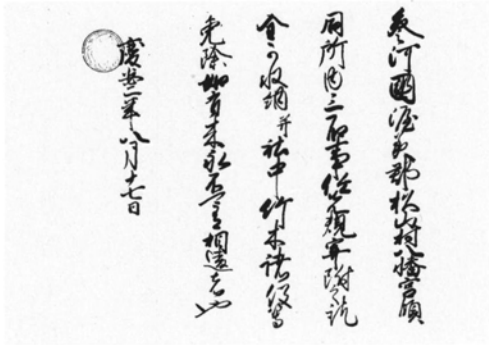 参河国渥美郡松山村八幡宮領
同所内三石事任先規寄附之訖
全可収納并社中竹木諸役等
免除如有来永不可有相違者也
慶安二年八月十七日